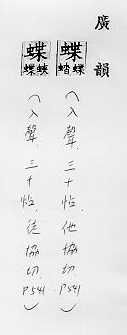 廣韻
蝶 蝶 蛺 (入聲.三十怗.他協切.P.541.)
蝶 蝶 蛺 (入聲.三十怗.徒協切.P.541)